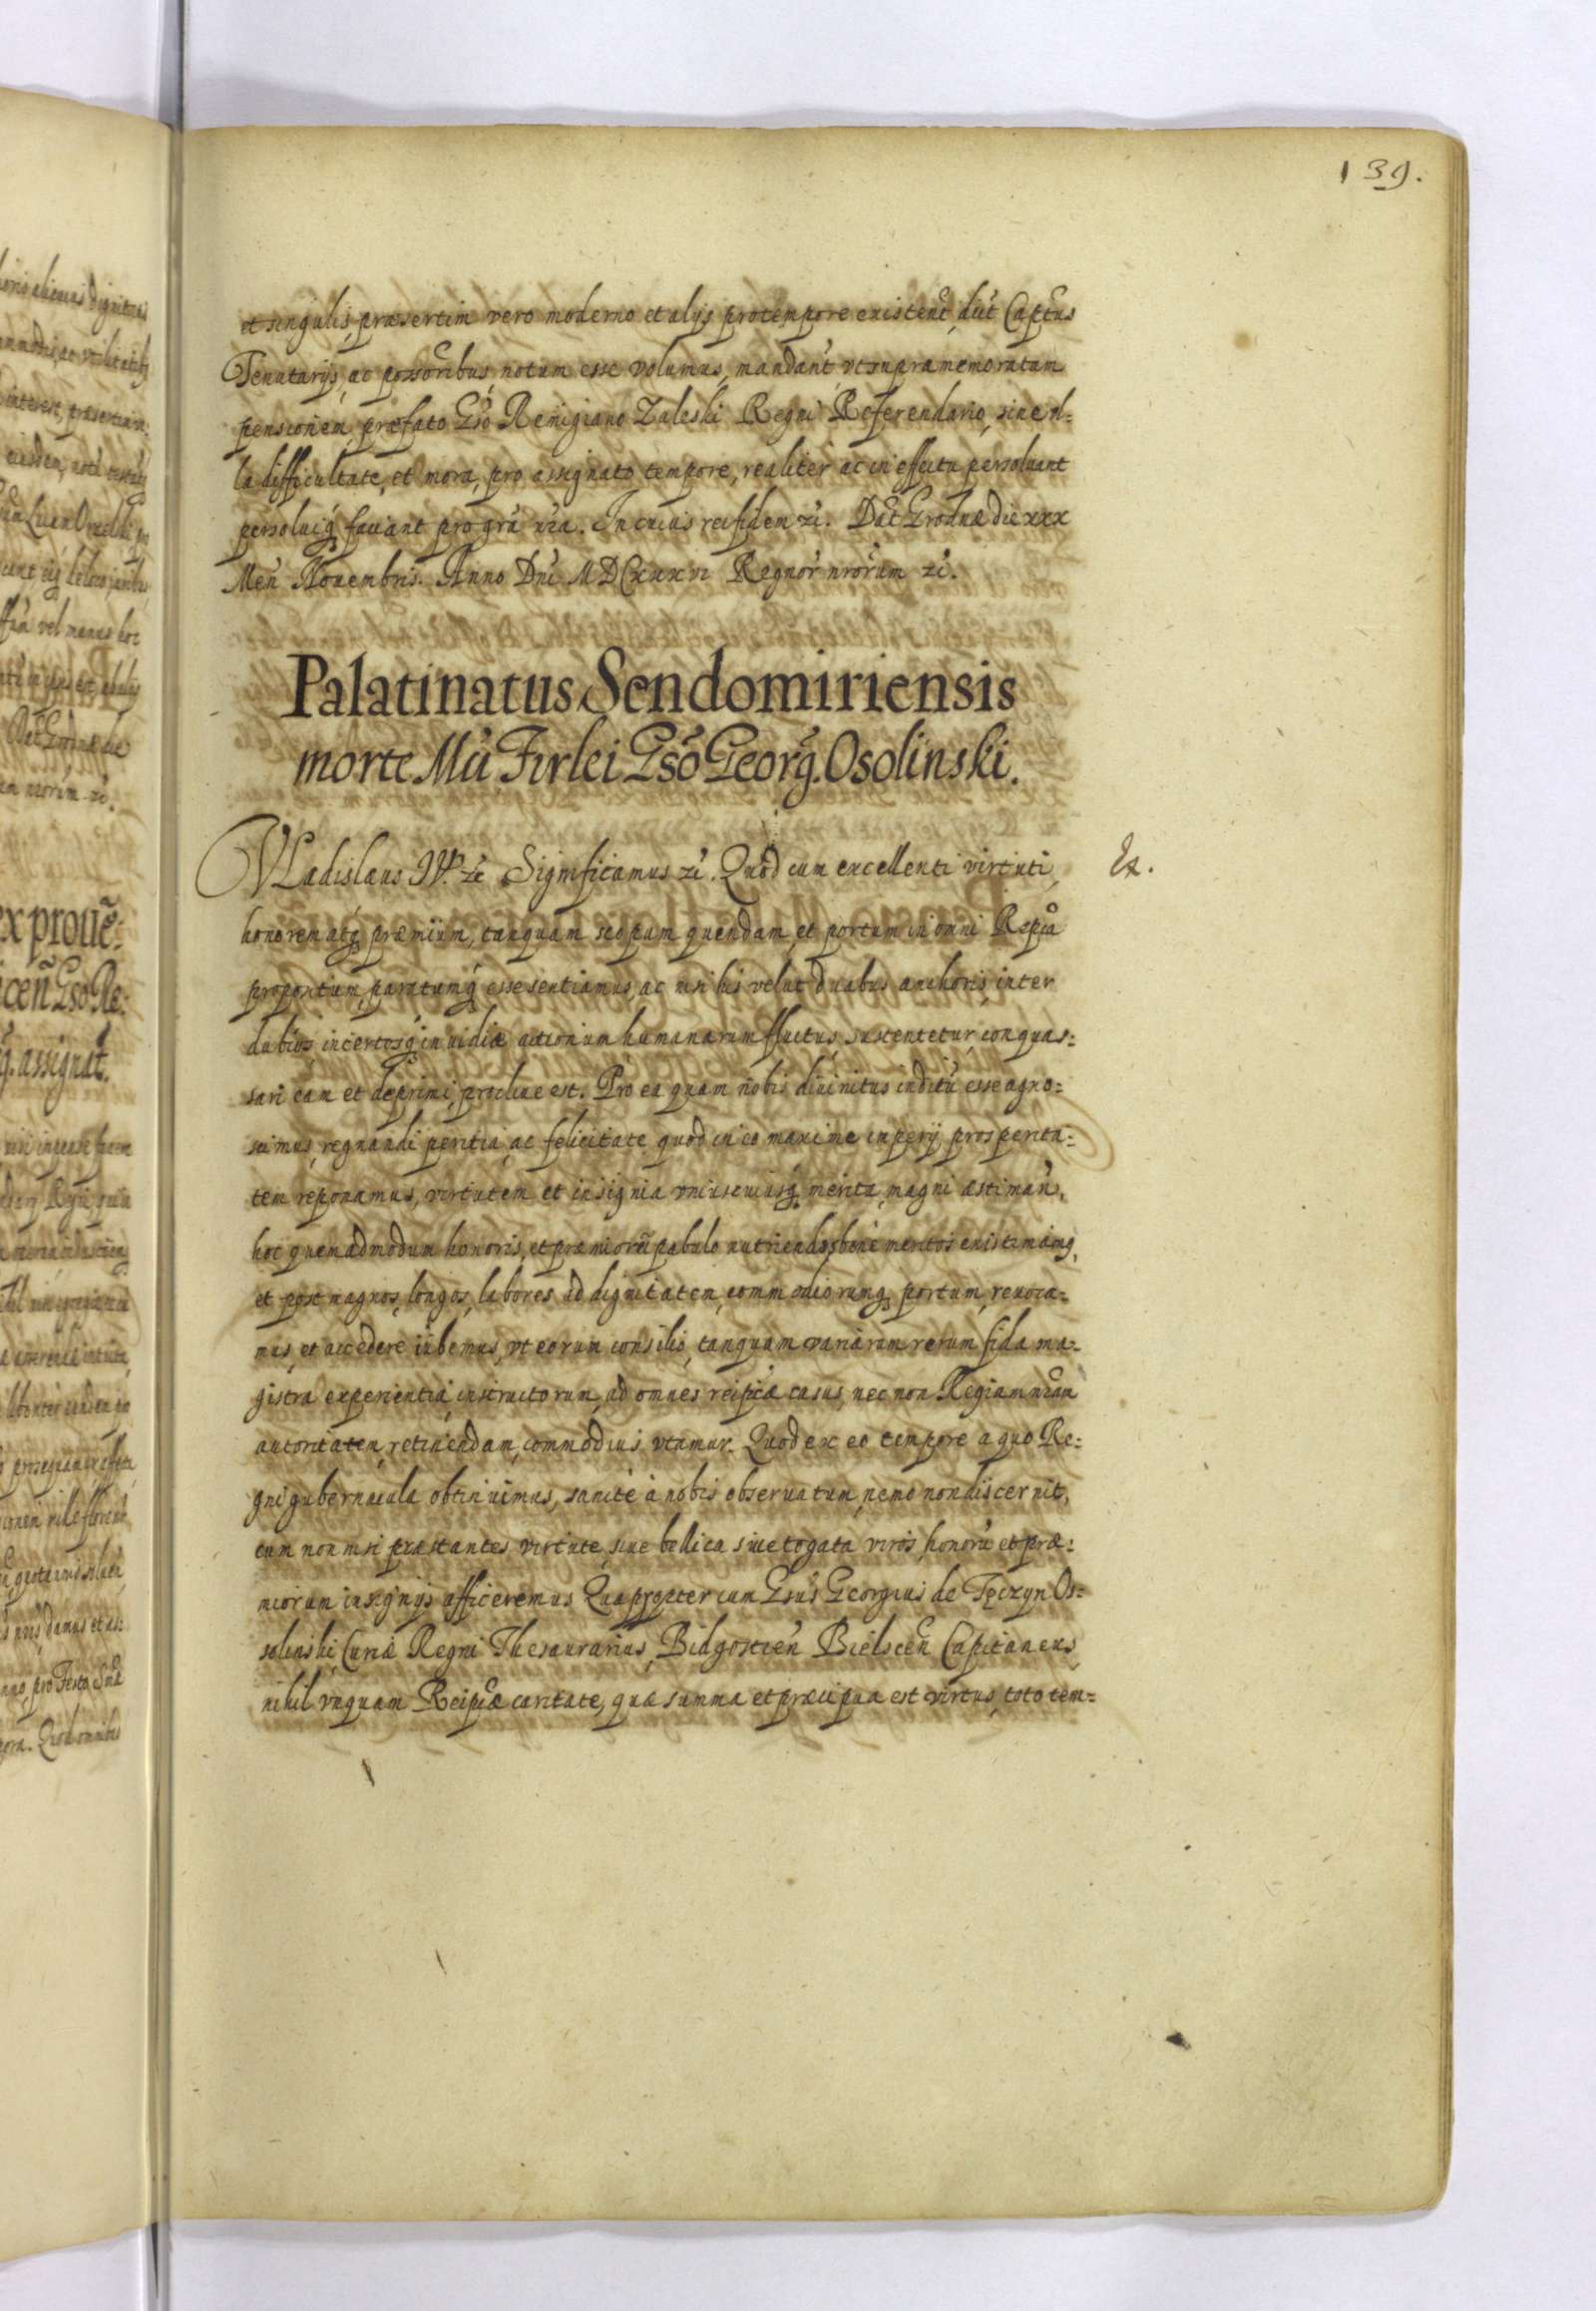 139.
et singulis, præsertim vero moderno et alijs pro tempore existeñ, dictˀ Captˢus
Tenutarijs, ac possoribus, notum esse volumus, mandantˀ, vt supramemoratam
pensionem, præfato Gsō Remigiano Zaleski Regni Referendario, sine vl-
la difficultate, et mora, pro assignato tempore, realiter ac in effectu persoluant
persoluiq́ faciant pro gr̃a nr̃a. In cuius rei fidem ꝛc̃. Dat̃ Grodnæ die xxx
Meñ Nouembris. Anno Dñi MDCxxxvi Regnor̃ nr̃orum ꝛc̃.
Palatinatus Sendomiriensis
morte Mci Firlei Gsō Georg. Osolinski.
VLadislaus IV. ꝛc̃ Significamus ꝛc̃. Quod cum excellenti virtuti,
Ex.
honorem atq́ præmium, tanquam scopum quendam, et portum in omni Repca
propositum, paratumq́ esse sentiamus, ac nisi his velut duabus anchoris, inter
dubios, incertosq́ inuidiæ actionum humanarum fluctus, sustentetur, conquas-
sari eam et deprimi, procliue est. Pro ea quam nobis diuinitus inditã esse agno-
scimus, regnandi peritia, ac felicitate quod in eo maxime imperij prosperita-
tem reponamus, virtutem et insignia vniuscuiusq́ merita, magni æstimañ,
hoc quemadmodum honoris, et præmiorũ pabulo nutriendos bene meritos existimamꝰ,
et post magnos, longos, labores ad dignitatem, commodiorumq́ portum, reuoca-
mus, et accedere iubemus, vt eorum consilio, tanquam variarum rerum fida ma-
gistra experientia, instructorum, ad omnes reipcæ casus, nec non Regiam nr̃am
autoritatem, retinendam, commodius vtamur. Quod ex eo tempore a quo Re-
gni gubernacula obtinuimus, sancte à nobis obseruatum, nemo non discernit,
cum non nisi præstantes virtute, siue bellica siue togata viros, honorũ et præ-
miorum insignijs afficeremus Quapropter cum Gsus Georgius de Tęczyn Os-
solinski, Curiæ Regni Thesaurarius, Bidgostieñ Bielsceñ Capitaneus,
nihil vnquam Reipcæ caritate, quæ summa et præcipua est virtus, toto tem-